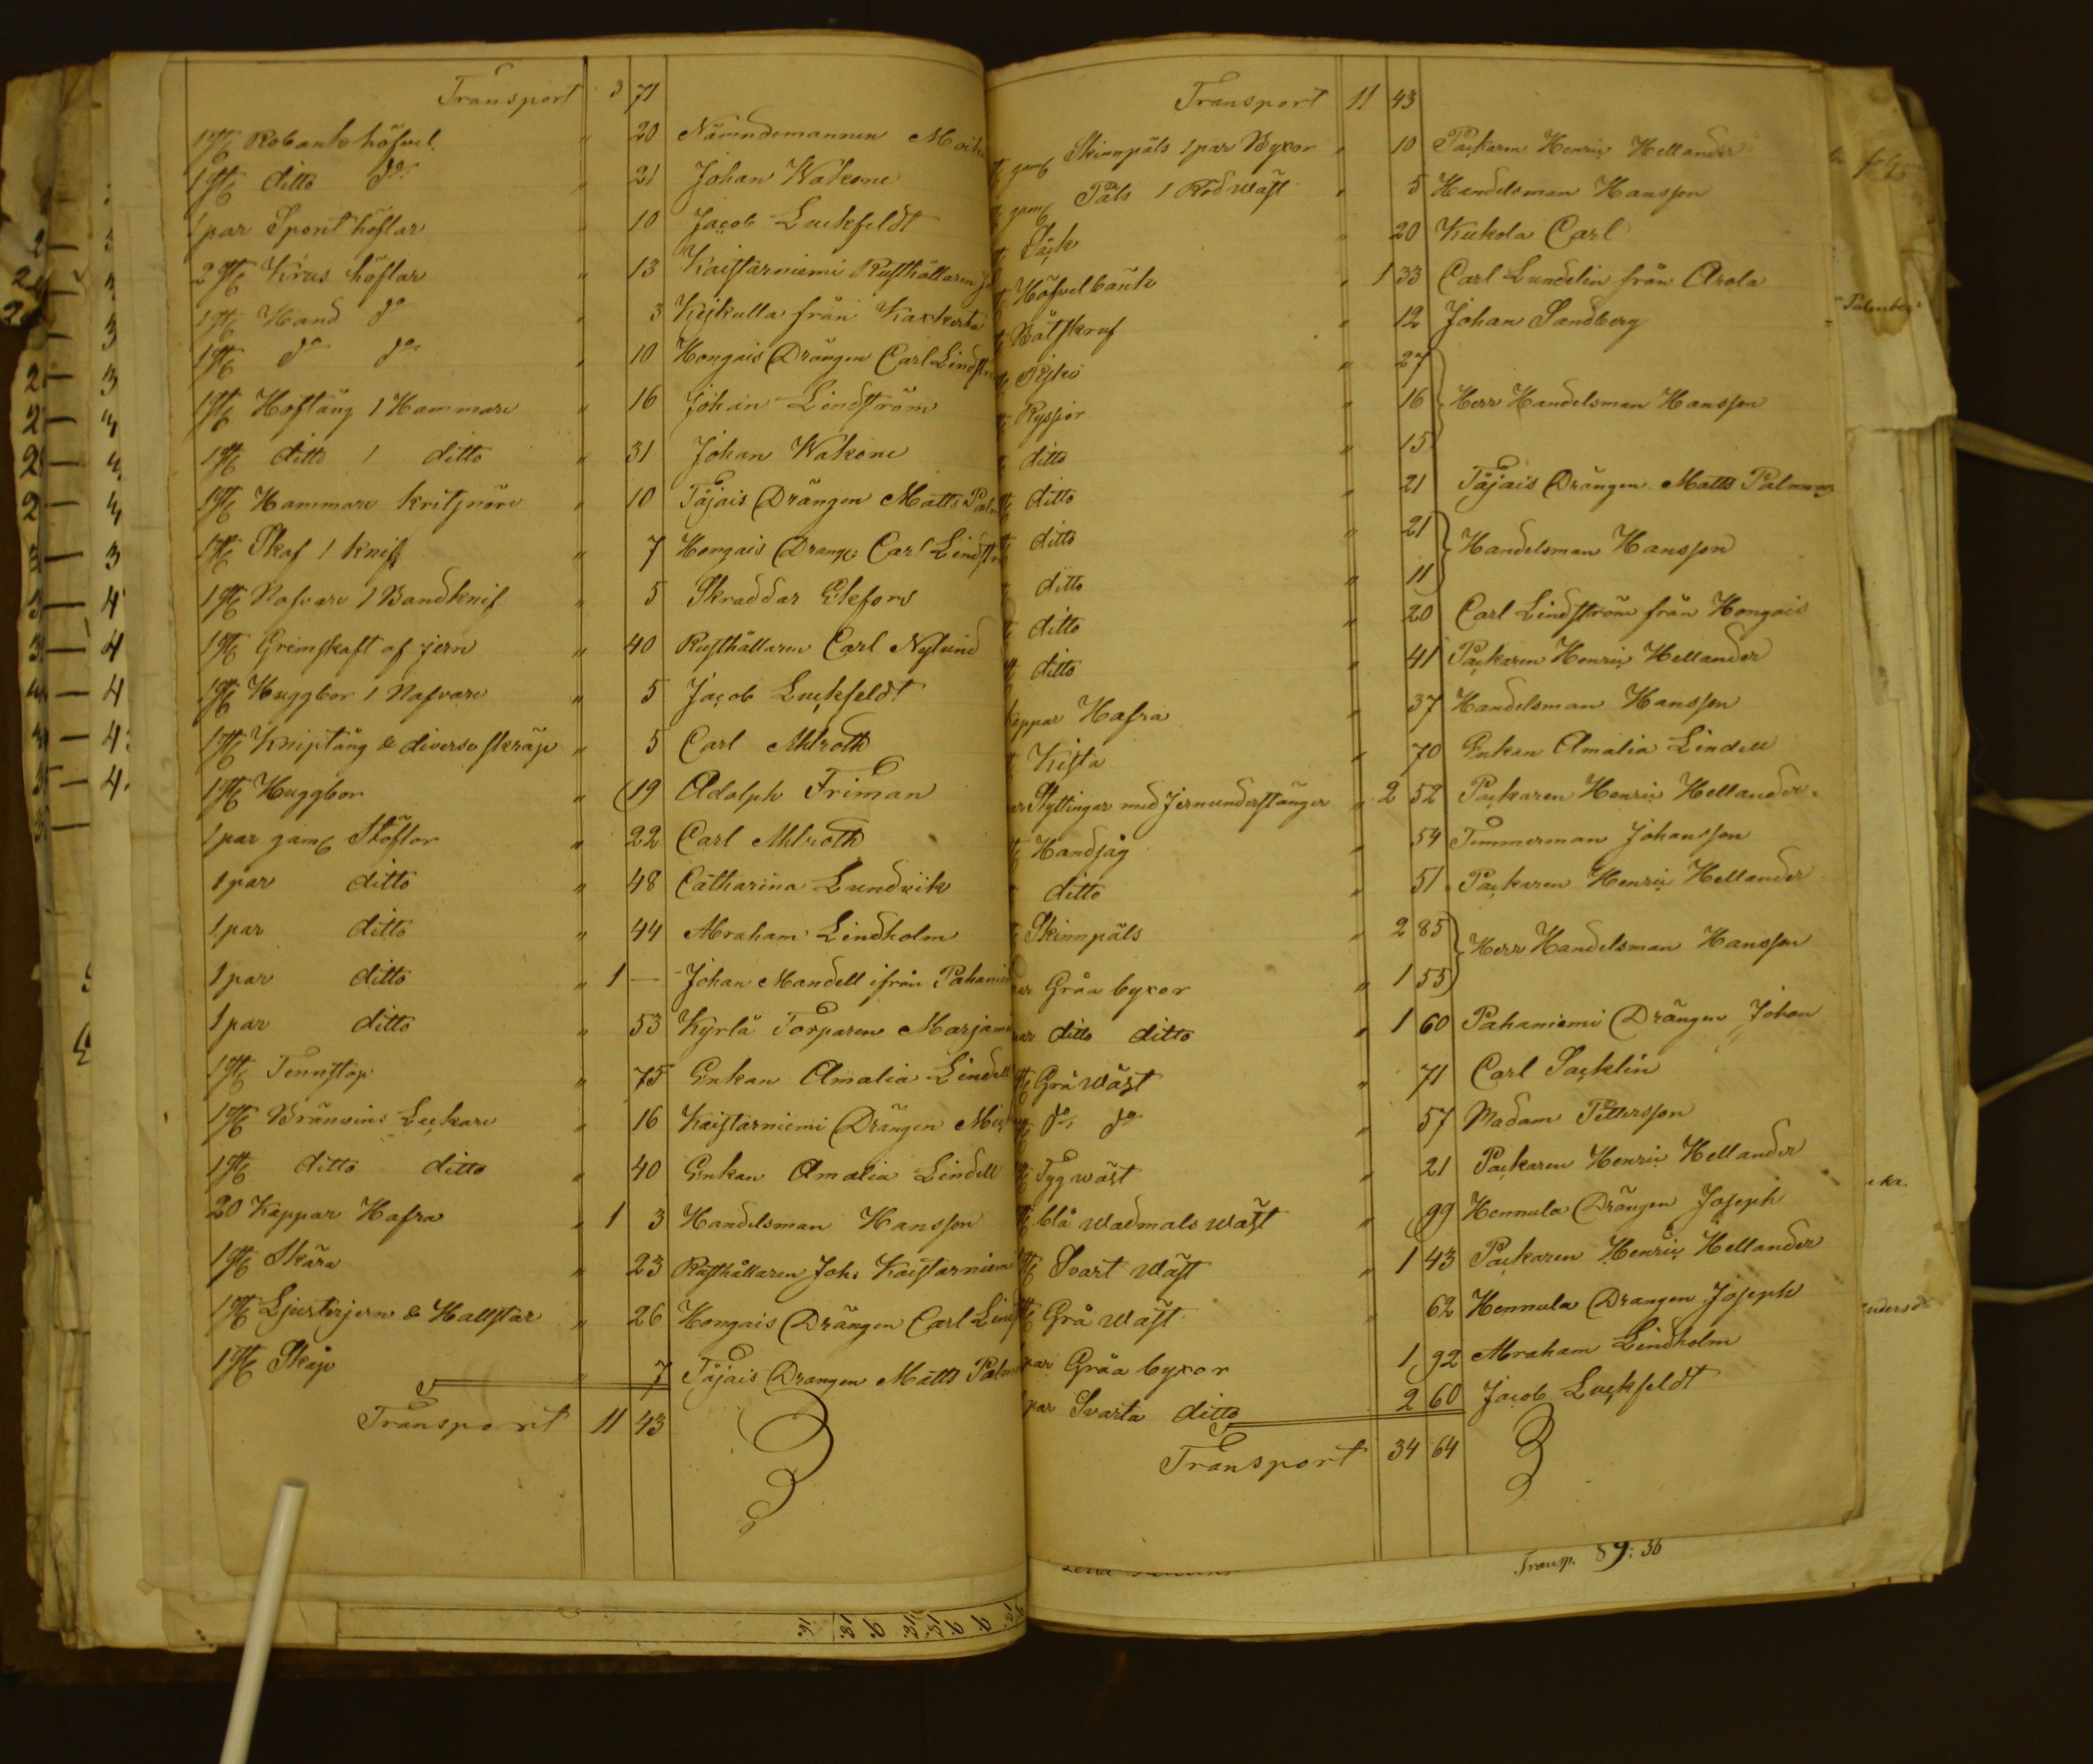 Transport 3 71
1 st Robank höfvel " 20 Nämndemannen
1 st ditto do " 21 Johan Wakone
1 par Spont höflar " 10 Jacob Luckfeldt
2 st Krus höflar " 13 Kaistarniemi Rusthållaren
1 st Hand do " 3 Kejkulla från
1 st do do " 10 Hongais Drängen Carl Lindst
1 st Hoftång 1 Hammare " 16 Johan Lindström
1 st ditto 1 ditto " 31 Johan Wakone
1 st Hammare kritsnöre " 10 Täjais Drängen Matts Palm
1 st Skaf 1 knif " 7 Hongais Dräng: Carl Lindstr
1 st Nafvare 1 Bandknif " 5 Skraddar Ekfors
1 st Grimskaft af jern " 40 Rusthållaren Carl Nylund
1 st Huggbor 1 Nafvare " 5 Jacob Luckfeldt
1 st Kniptång & diverse skräp " 5 Carl Ahlroth
1 st Huggbor " 19 Adolph Friman
1 par gaml Stöflor " 22 Carl Ahlroth
1 par ditto " 48 Catharina Lundvik
1 par ditto " 44 Abraham Lindholm
1 par ditto " 1 — Johan Mandell ifrån Pahanie
1 par ditto " 53 Kyrlä Torparen Marjam
1 st Tennstop " 75 Enkan Amalia Lindell
1 st Bränvins Luckare " 16 Kaistarniemi Drängen
1 st ditto ditto " 40 Enkan Amalia Lindell
20 Kappar Hafra " 1 3 Handelsman Hansson
1 st Skära " 23 Rusthållaren Joh: Kaistarniem
1 st Ljusterjern & Hallstar " 26 Hongais Drängen Carl Lind
1 st Skåp " 7 Täjais Drangen Matts Palm
Transport 11 43
Transport 11 43
gaml Skinnpäls 1 par Byxor " 10 Packaren Henric Hellander
gaml Päls 1 Röd wäst " 5 Handelsman Hansson
Säck " 20 Kukola Carl
Höfvelbänk " 1 33 Carl Lundelin från Arola
Båtskruf " 12 Johan Sandberg
" 27
Ryssjor " 16 Herr Handelsman Hansson
ditto " 15
ditto " 21 Täjais Drängen Matts Palm
ditto " 21 Handelsman Hansson
ditto " 11
ditto " 20 Carl Lindström från Hongais
ditto " 41 Packaren Henric Hellander
kappar Hafra " 37 Handelsman Hansson
Kista " 70 Enkan Amalia Lindell
Styttingar med Jernunderstänger " 2 52 Packaren Henric Hellander
Handsåg " 54 Timmerman Johansson
ditto " 51 Packaren Henric Hellander
Skinnpäls " 2 85 Herr Handelsman Hansson
par Gråa byxor " 1 55
par ditto ditto " 1 60 Pahaniemi Drängen Johan
st Grå wäst " 71 Carl Sacklin
st do do " 57 Madam Pettersson
st Tyg wäst " 21 Packaren Henric Hellander
st blå wadmals wäst " 99 Hennula Drängen Joseph
st Svart wäst " 1 43 Packaren Henric Hellander
st Grå wäst " 62 Hennula Drangen Joseph
par Gråa byxor 1 92 Abraham Lindholm
par Svarta ditto 2 60 Jacob Luckfeldt
Transport 34 64
Transp. 59: 56